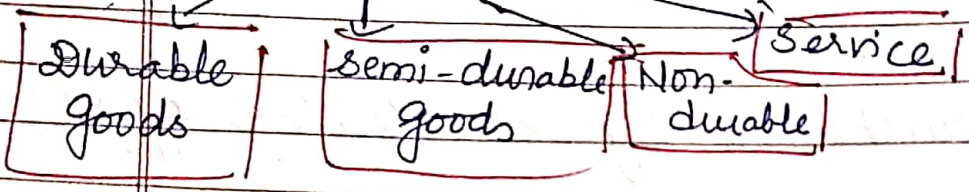 Durable
goods
Semi-durable
goods
Non-
durable
Service